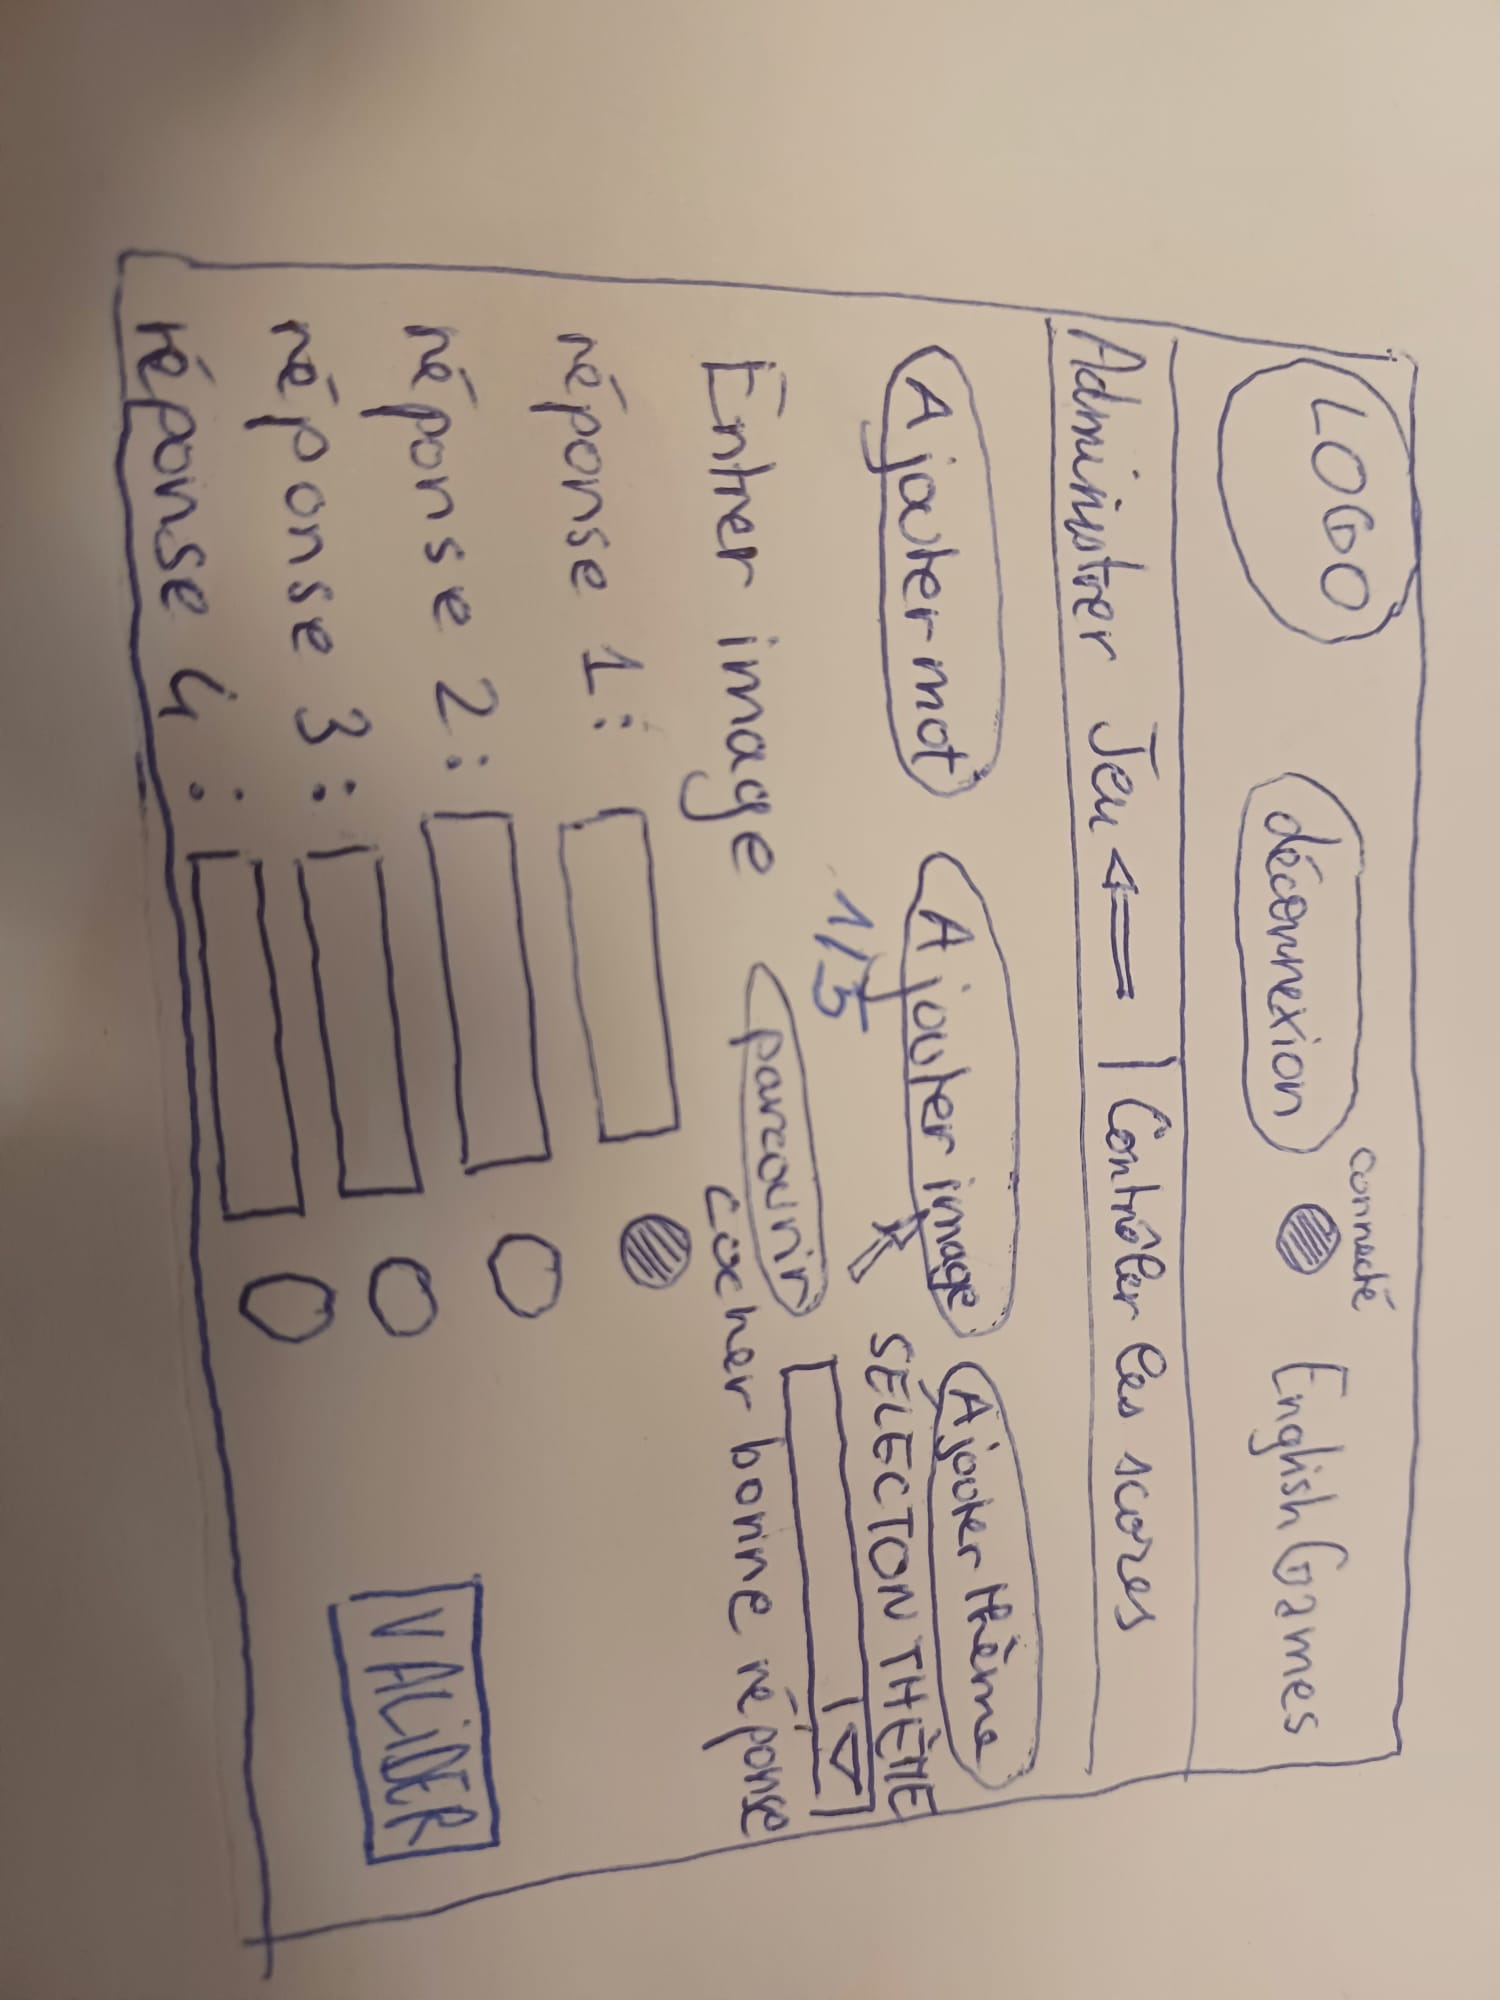 LOGO déconnexion connecté EnglishGames
Administrer Jeu | Contrôler les scores
Ajouter mot Ajouter image Ajouter thème
1/5 SÉLECTON THÈME
Entrer image parcourir
cocher bonne réponse
réponse 1 :
réponse 2 :
réponse 3 :
réponse 4 :
VALiDER